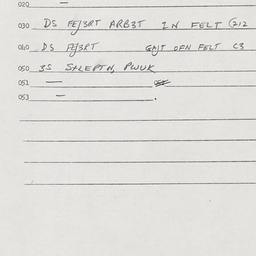 020 —
030 DS FE/3RT ARB3T IN FELT G212
040 DS FE/3RT GAJT OFN FELT C3
050 3S
051 —
053 — .